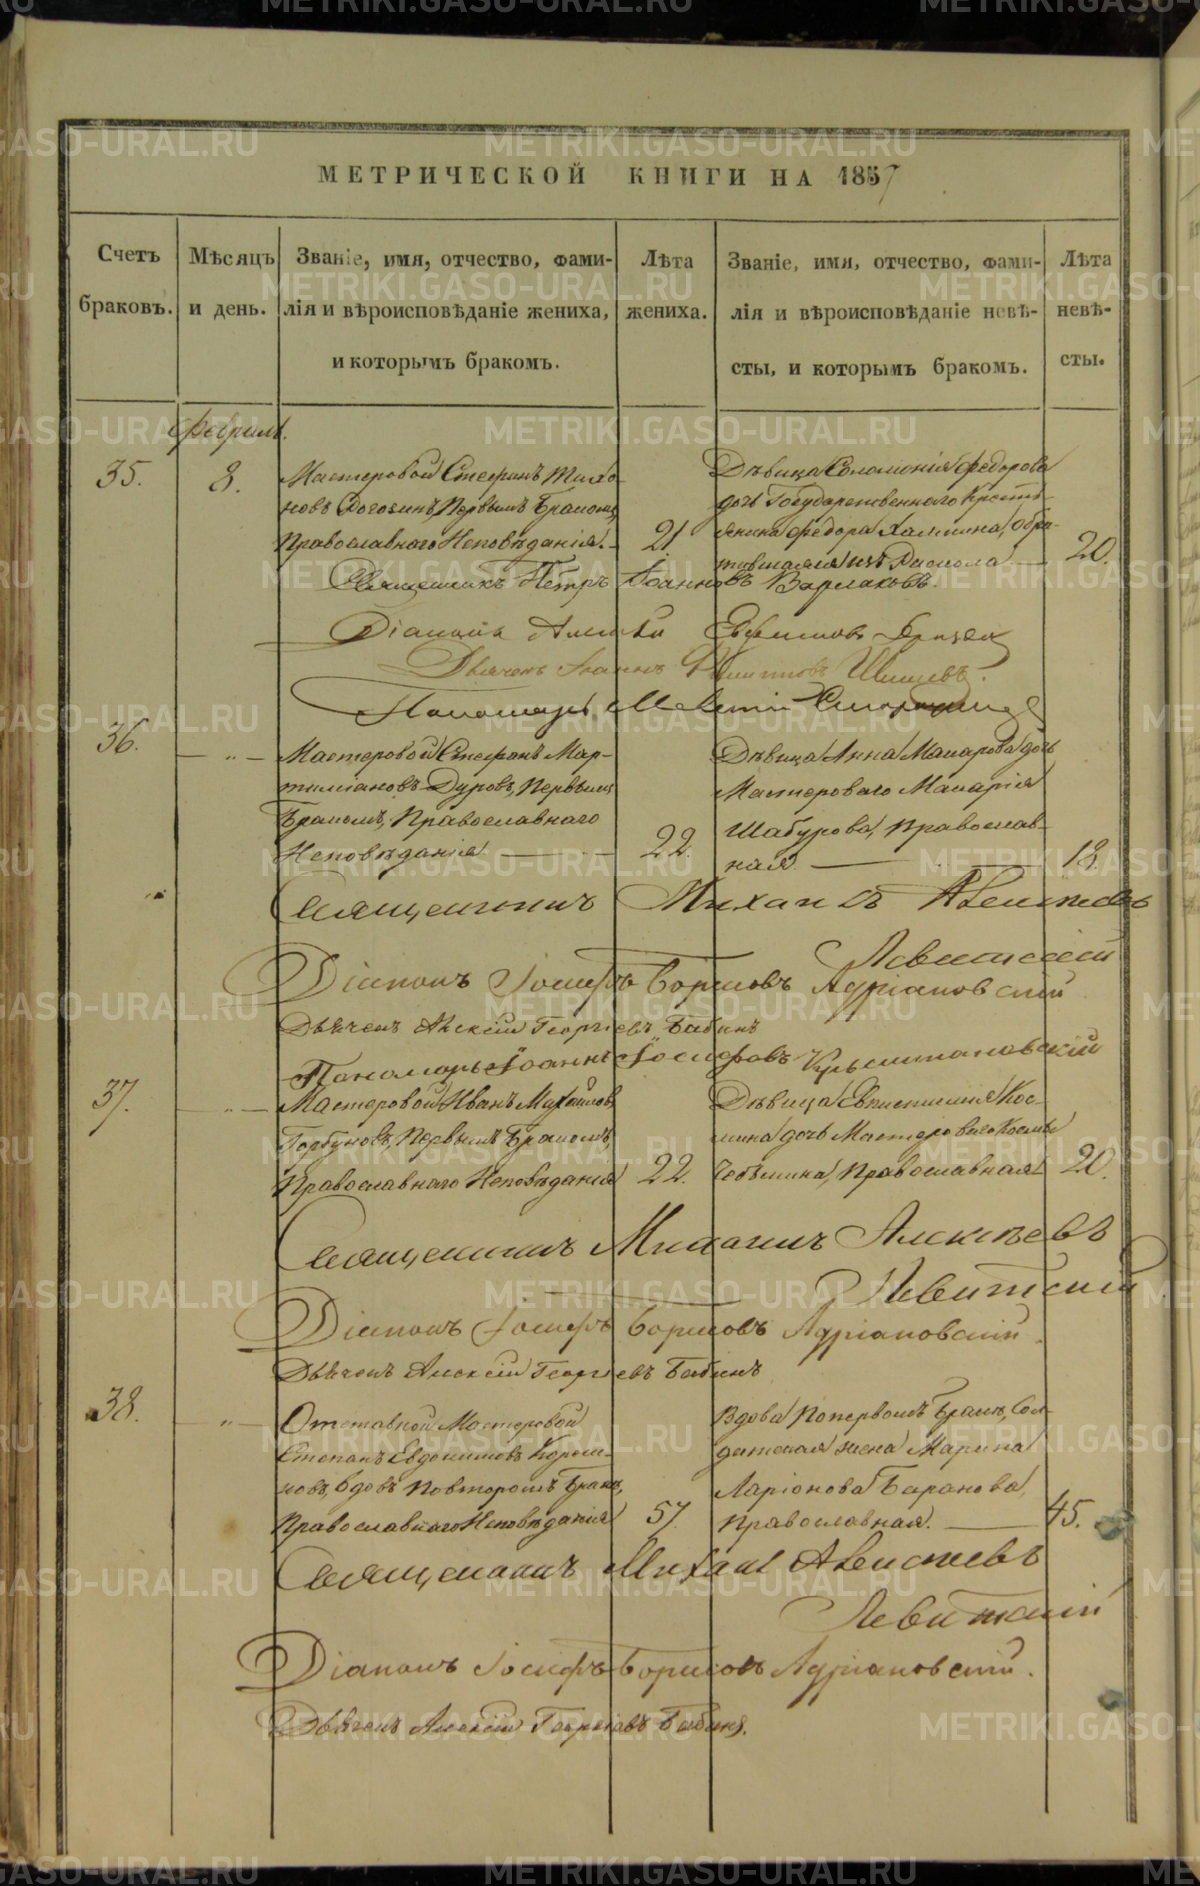 МЕТРИЧЕСКОЙ КНИГИ НА 1857
Счетъ браковъ.
Мѣсяцъ и день.
Званіе, имя, отчество, фами-
лія и вѣроисповѣданіе жениха,
и которымъ бракомъ.
Лѣта жениха.
Званіе, имя, отчество, фами-
лія и вѣроисповѣданіе невѣ-
сты, и которымъ бракомъ.
Лѣта невѣ-
сты.
Февраль.
35.
8.
Мастеровой Стефанъ Тихо-
новъ Первымъ Бракомъ,
Православнаго Исповѣданія.
21
Дѣвица Соломонія Федорова
дочь Государственнаго Кресть-
янина Федора Халтина, обра-
тившаяся изъ Раскола
20.
Священникъ Петръ Іоанновъ Варлаковъ.
Діаконъ Алексѣй Евфимовъ
Дьячекъ Іоаннъ Филипповъ Шишевъ.
Пономарь
36.
-"-
Мастеровой Стефанъ Мар-
тиміановъ Дуровъ, Первымъ
Бракомъ, Православнаго
Исповѣданія
22.
Дѣвица Анна Макарова дочь
Мастероваго Макарія
Шабурова, Православ-
ная.
18.
Священникъ Михаилъ Алексѣевъ
Левитскій
Діаконъ Іосифъ Борисовъ Адріановскій
Дьячекъ Алексій Георгіевъ Бабинъ
Пономарь Іоаннъ Іосифовъ
37.
-"-
Мастеровой Иванъ Михайловъ
Горбуновъ, Первымъ Бракомъ,
Православнаго Исповѣданія
22.
Дѣвица Евпистимія Кос-
мина дочь Мастероваго Космы
Православная
20.
Священникъ Михаилъ Алексѣевъ
Левитскій
Діаконъ Іосифъ Борисовъ Адріановскій.
Дьячекъ Алексій Георгіевъ Бабинъ
38.
-"-
Отставной Мастеровой
Степанъ Евдокимовъ
вдовъ повторомъ Бракѣ,
Православнаго Исповѣданія
57.
Вдова Попервомъ Бракѣ, Сол-
датская жена Марина
Ларіонова Баранова,
Православная.
45.
Священникъ Михаилъ Алексѣевъ
Левитскій
Діаконъ Іосифъ Борисовъ Адріановскій.
Дьячекъ Алексій Георгіевъ Бабинъ.
METRIKI.GASO-URAL.RU